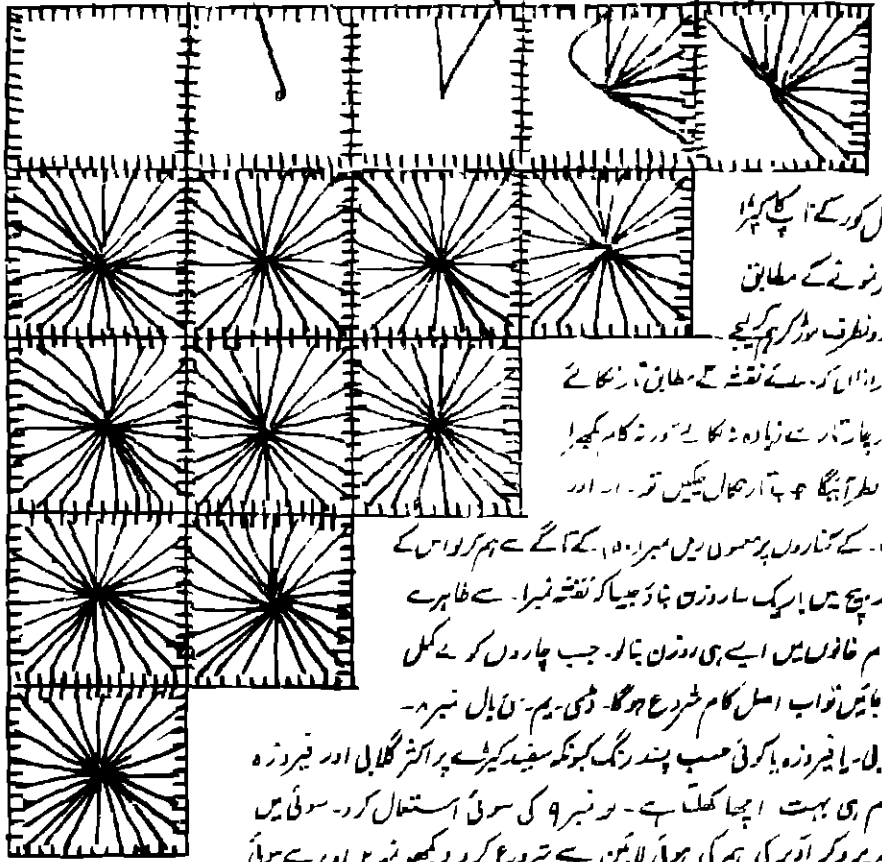 کور کے ناپ کا کپڑا
نمونے کے مطابق
دونطرف موڑ کر ہم کیجے
نقشہ کے مطابق تار نکالئے
تار سے زیادہ نہ نکالے ورنہ کام
نظر آئیگا جب تار نکال چکیں تو
کے کناروں پر معمولی ریل نمبر کے تاگے سے ہم کرلو اس کے
بیچ میں باریک سا روزن بناؤ جیسا کہ نقشہ نمبرا۔ سے ظاہر ہے
خانوں میں ایسے ہی روزن بنالو۔ جب چاروں کونے مکمل
جائیں تو اب اصل کام شروع ہوگا۔ ڈمی۔یم۔سی بال نمبر ۸۔
یا فیروزہ یا کوئی حسب پسند رنگ کیونکہ سفید کپڑے پر اکثر گلابی اور فیروزہ
ہی بہت اچھا کھلتا ہے۔ نمبر ۹ کی سوئی استعمال کرو۔ سوئی میں
پرو کر اوپر کی ہم کی ہوئی لائین سے شروع کرو دیکھو